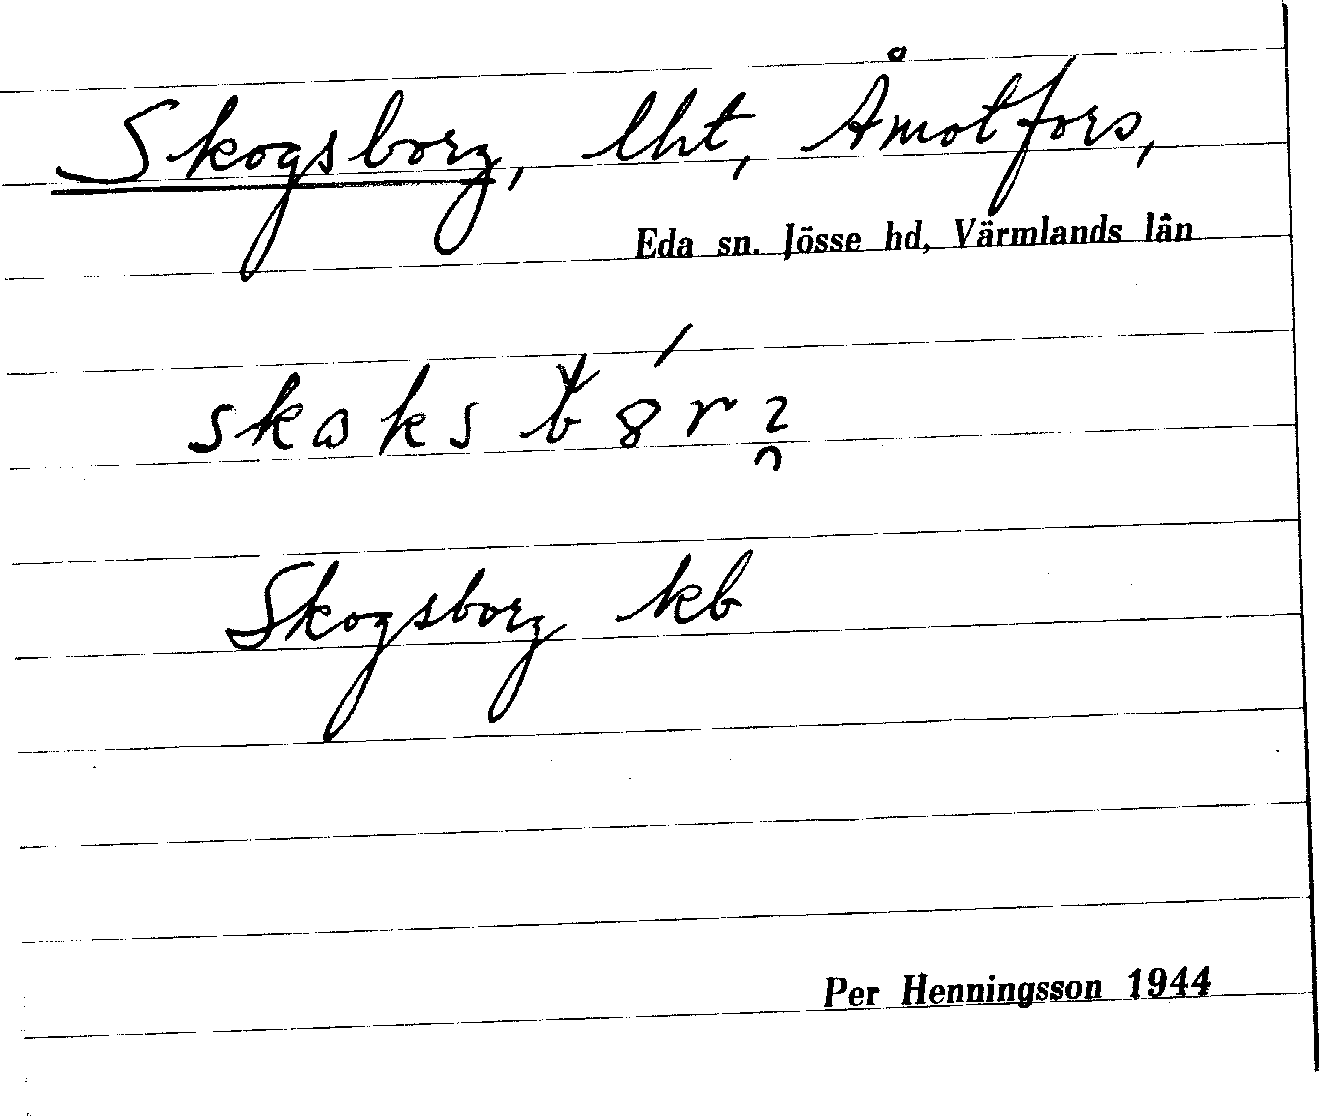 Skogsborg, lht, Åmotfors,
Eda sn. Jösse hd, Värmlands län
Skogsborg kb
Per Henningsson 1944